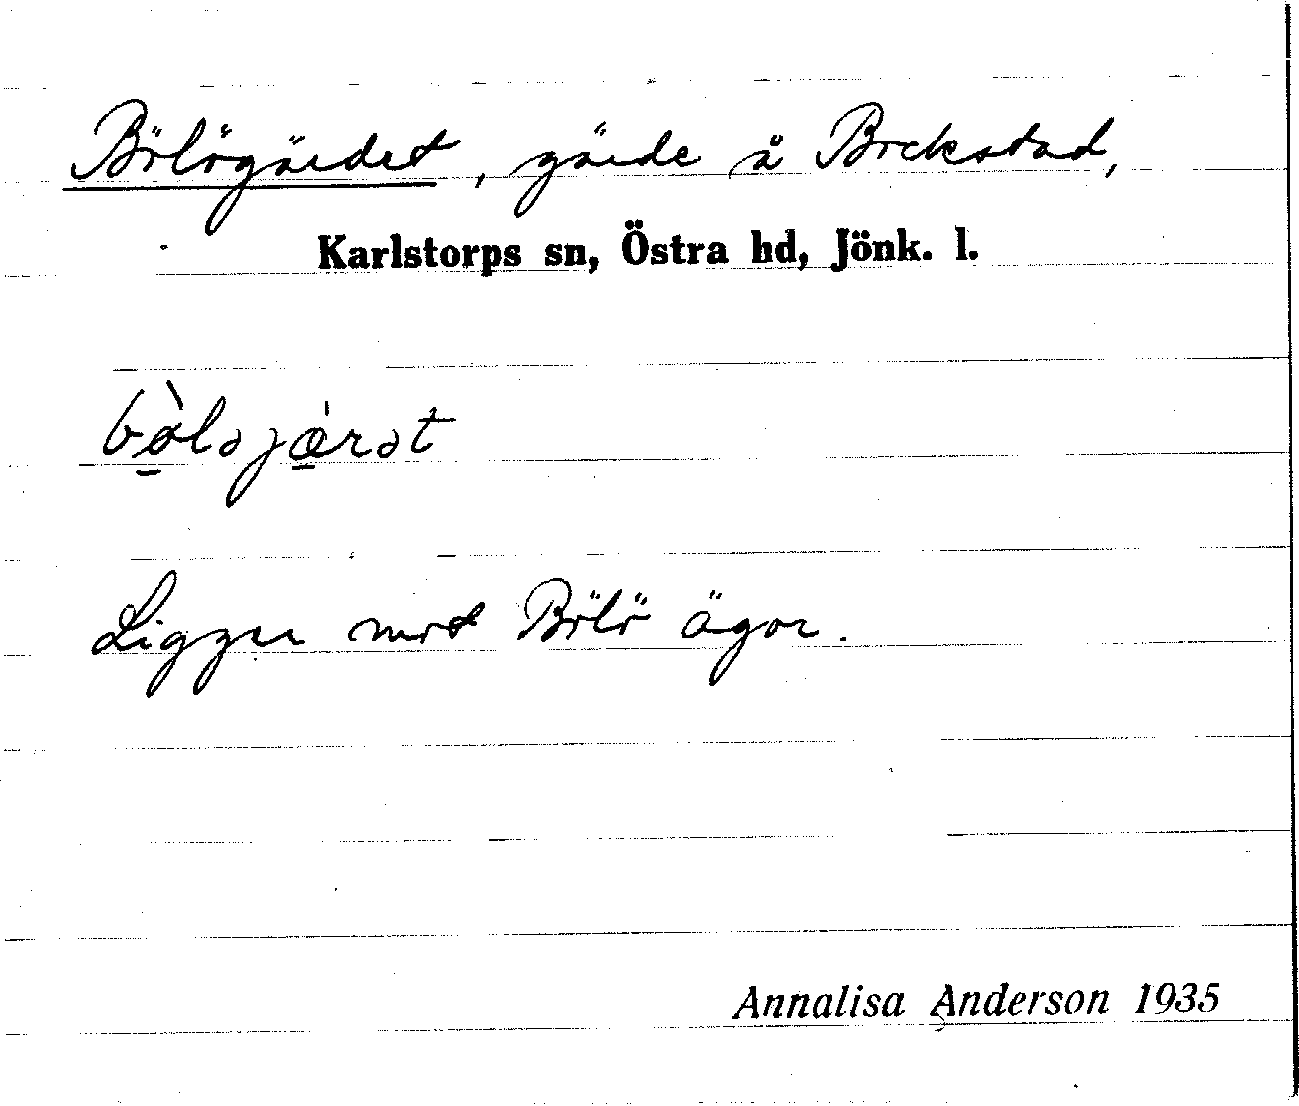 Bölögärdet, gärde å Bockstad,
Karlstorps sn, Östra hd, Jönk. l.
bø̀ləjæ̀rət
Ligger mot Bölö ägor.
Annalisa Anderson 1935